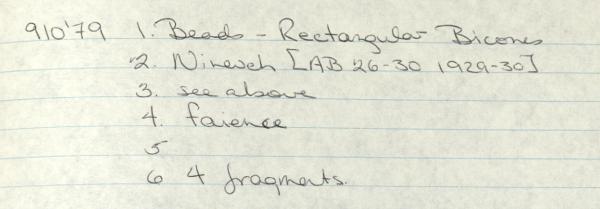 910'79 1. Beads - Rectangular Bicones
2. Nineveh [AB 26-30 1929-30]
3. see above
4. faience
5
6 4 fragments.